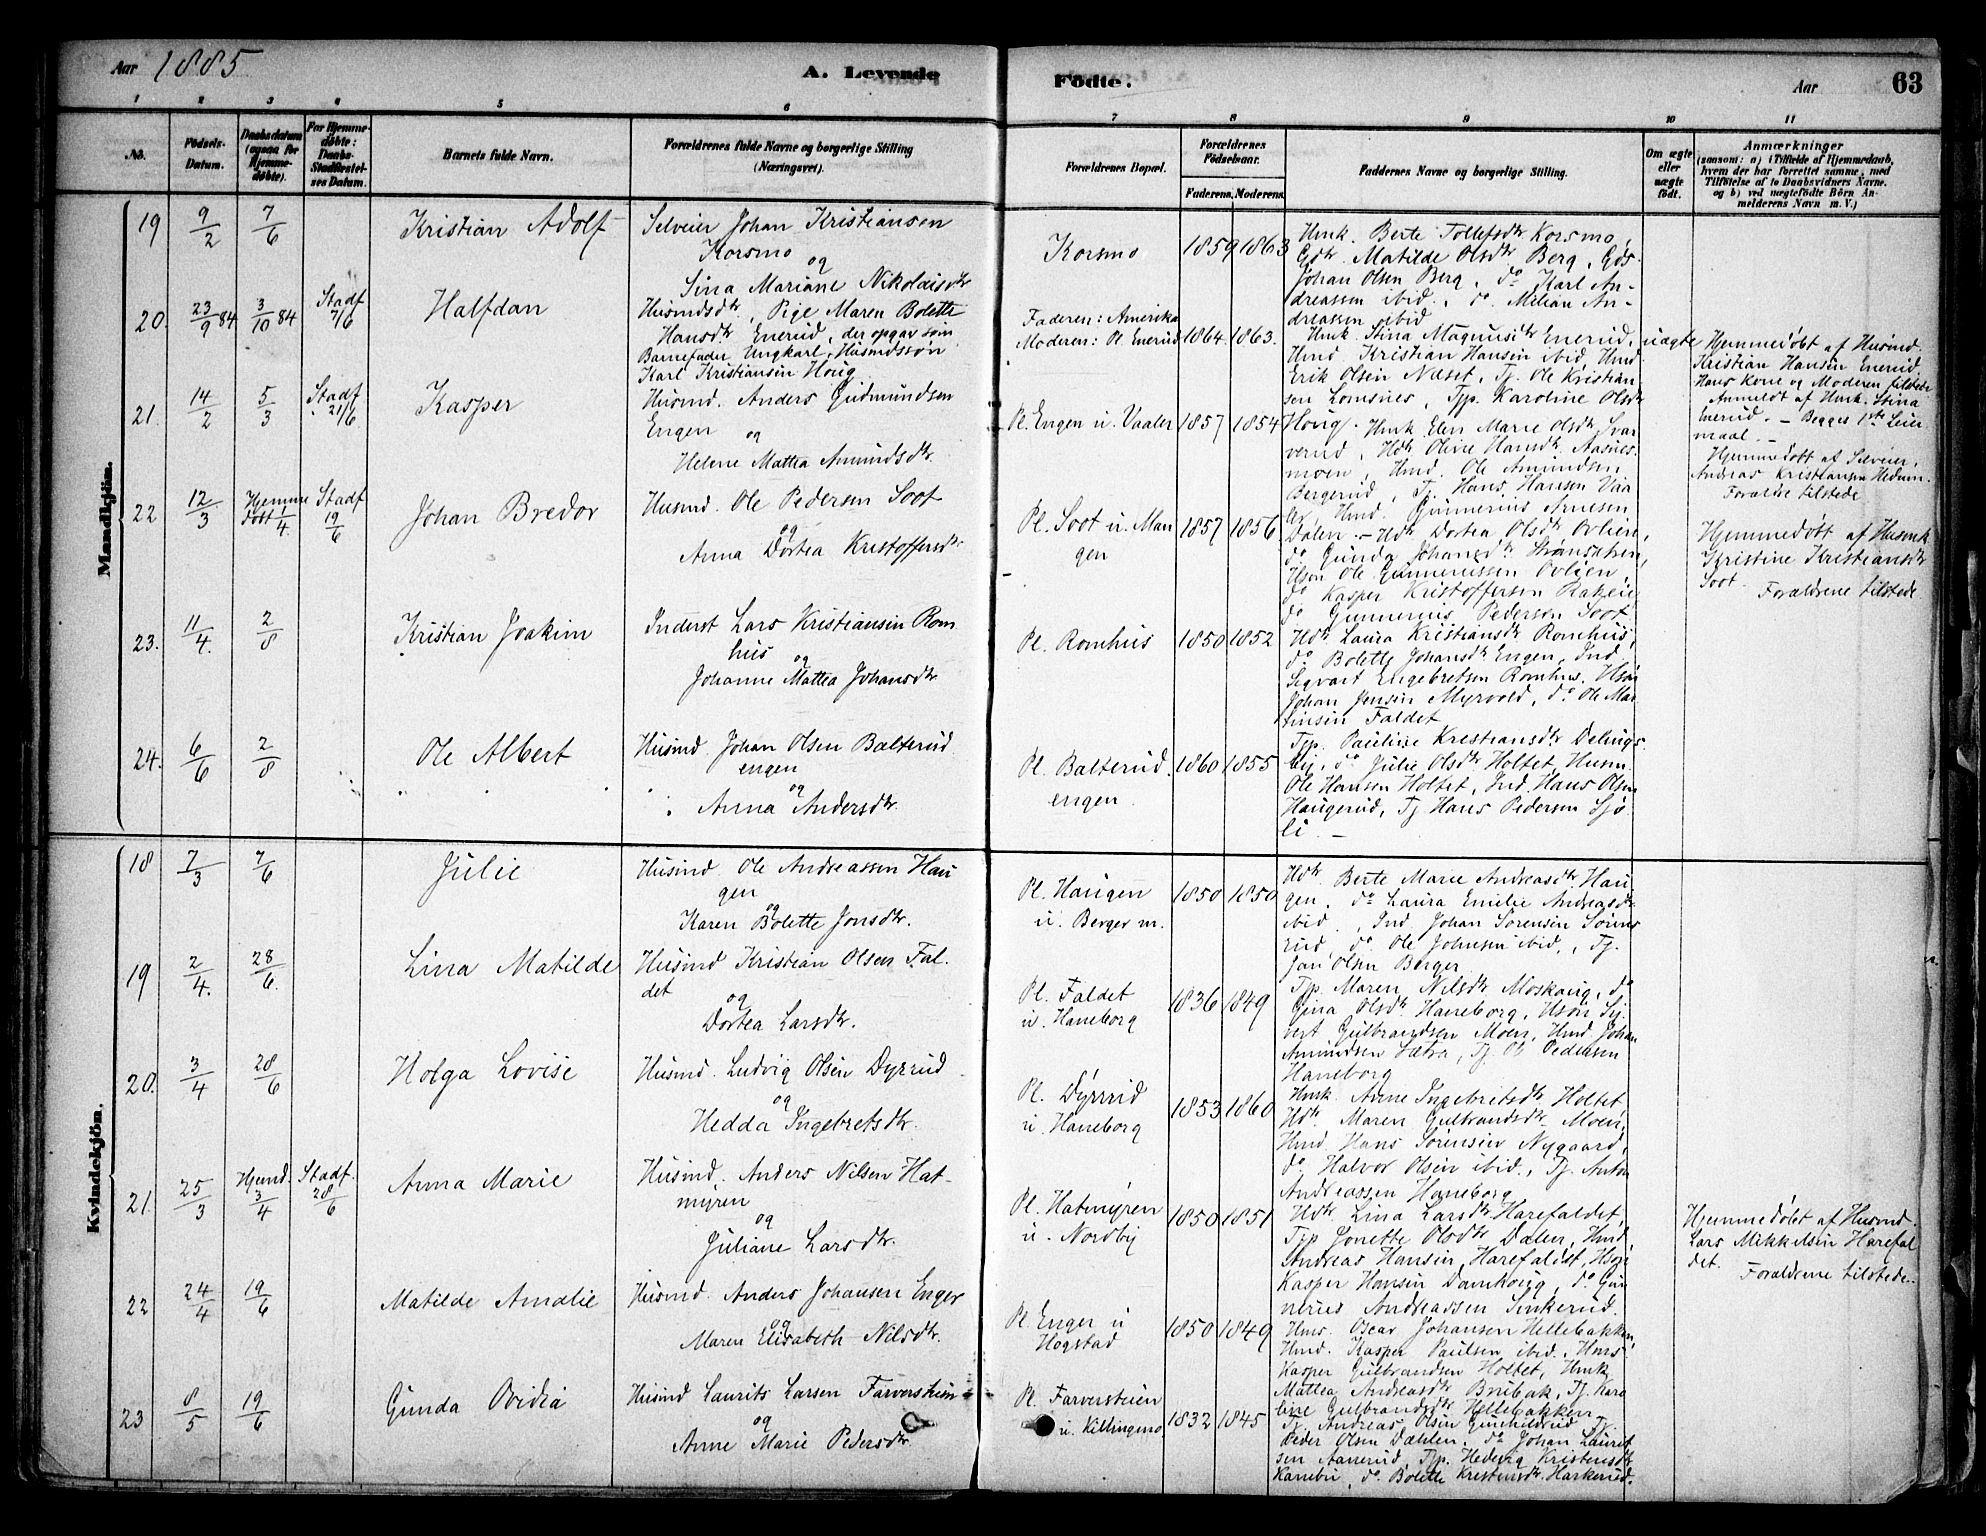 Aar 1885
A. Levende
Födte.
Aar
63
1
2
3
4
5
6
7
8
9
10
11
No.
Födsels-
Datum.
Daabsdatum
(ogsaa for
Hjemme-
döbte).
For Hjemme-
döbte:
Daabs-
Stadfæstel-
ses Datum.
Barnets fulde Navn.
Forældrenes fulde Navne og borgerlige Stilling
(Næringsvei).
Forældrenes Bopæl.
Forældrenes
Födselsaar.
Faderens.
Moderens.
Faddernes Navne og borgerlige Stilling.
Om ægte
eller
uægte
födt.
Anmærkninger
(saasom: a) i Tilfælde af Hjemmedaab,
hvem der har forrettet samme, med
Tilföielse af to Daabsvidners Navne.
og b) ved uægtefödte Börn An-
melderens Navn m. V.)
Mandkjön.
19
9/2
7/6
Kristian Adolf
Selveier Johan Kristiansen
Korsmo
og
Sina Mariane Nikolaisdtr
Korsmo
1859
1863
Hmk. Berte Tollefsdtr Korsmo,
Gdtr. Matilde Olsdtr Berg, Gds.
Johan Olsen Berg, do Karl An-
dreassen ibid., do. Milian An-
dreassen ibid
20.
23/9 84
3/10 84
Stadf
7/6
Halfdan
Husmdsdtr., Pige Maren Bolette
Hansdtr Enerud, der opgav som
Barnefader Ungkarl, Husmdssøn
Karl Kristiansen Houg
Faderen: Amerika
Moderen: Pl. Enerud
1864.
1863.
Hmk. Stina Magnusdtr Enerud,
Hmd. Kristian Hansen ibid Hmd
Erik Olsen Næset, Tj. Ole Kristian-
sen Lomsnes, Tjp. Karoline Olsdtr
Houg.
uægte
Hjemmedøbt af Husmd.
Kristian Hansen Enerud.
Hans Kone og Moderen tilstede
Anmeldt af Hmk. Stina
Enerud. — Begges 1ste Leier
maal. —
21.
14/2
5/3
Stadf
21/6
Kasper
Husmd. Anders Gudmundsen
Engen
og
Helene Mattea Amundsdtr.
Pl. Engen u. Vaaler
1857
1854
Hmk Elen Marie Olsdtr Svar
verud, Hdtr Olive Hansdtr Aasnes-
moen, Hmd. Ole Amundsen
Bergerud, Tj. Hans Hansen Vaa
ler, Hmd. Gunnerius Arnesen
Dalen. —
Hjemmedøbt af Selveier,
Andreas Kristiansen Hedum.
Forældre tilstede
22
12/3
Hjemme
døbt 1/4.
Stadf
19/6
Johan Bredor
Husmd. Ole Pedersen Soot
og
Anna Dortea Kristoffersdtr.
Pl. Soot u. Man
gen
1857
1856.
Hdtr Dortea Olsdtr Ovlien,
do Gunda Johansdtr Strønsæteren,
Hsøn Ole Gunneriussen Ovlien,
do Kasper Kristoffersen Rakeie
do Gunnerius Pedersen Soot
Hjemmedøbt af Husmk
Kristine Kristiansdtr
Soot. Forældrene tilstede
23.
11/4.
2/8
Kristian Joakim
Inderst Lars Kristiansen Rom
hus
og
Johanne Mattea Johansdtr
Pl. Romhus
1850
1852
Hdtr Laura Kristiansdtr Romhus,
do Bolette Johansdtr Engen, Ind
Sigvart Engebretsen Romhus, Hsøn
Johan Jensen Myrvold, do. Ole Mar
tinsen Faldet
24.
6/6
2/8
Ole Albert
Husmd Johan Olsen Balterud
engen
og
Anna Andersdtr.
Pl. Balterud.
engen
1860
1855
Tjp. Pauline Kristiansdtr Delings
by, do Julie Olsdtr Holtet, Husm.
Ole Hansen Holtet, Ind. Hans Olsen
Haugerud, Tj. Hans Pedersen Sjø
li. —
Kvindekjön.
18
7/3
7/6
Julie
Husmd Ole Andreassen Hau
gen
og
Karen Bolette Jonsdtr.
Pl. Haugen
u. Berger m.
1850
1850
Hdtr. Berte Marie Andreasdtr Hau-
gen, do Laura Emelie Andreasdtr
ibid., Ind Johan Sørensen Sønes
rud, do Ole Johnsen ibid, Tj.
Jan Olsen Berger
19
2/4.
28/6.
Lina Matilde
Husmd Kristian Olsen Fal.
det
og
Dortea Larsdtr.
Pl. Faldet
u. Haneborg
1836
1849
Tjp. Maren Nilsdtr Moskaug, do
Gina Olsdtr Haneborg, Hsøn Sy-
vert Gulbrandsen Moen, Hmd Johan
Amundsen Sætra, Tj. Ole Pedersen
Haneborg
20.
3/4
28/6
Holga Lovise
Husmd. Ludvig Olsen Dyrrud
og
Hedda Ingebretsdtr.
Pl. Dyrrud
u. Haneborg
1853
1860
Hmk. Anne Ingebretsdtr Holtet,
Hdtr. Maren Gulbrandsdtr Moen,
Hmd Hans Sørensen Nygaard,
do Halvor Olsen ibid., Tj. Anton
Andreassen Haneborg
21.
25/3
Hjemd.
3/4
Stadf.
28/6
Anna Marie
Husmd. Anders Nilsen Hat-
myren
og
Juliane Larsdtr.
Pl. Hatmyren
u. Nordby
1850
1851
Hdtr Lina Larsdtr Harefaldet,
Tjp Jonette Olsdtr Dalen, Hmd.
Andreas Hansen, Harefaldet, Hsøn
Kasper Hansen Damhoug, do Gun
nerius Andreassen Sinkerud.
Hjemmedøbt af Husmd.
Lars Mikkelsen Harefal
det. Forældrene tilstede.
22
24/4
19/6
Matilde Amalie
Husmd. Anders Johansen Enger
og
Maren Elisabeth Nilsdtr.
Pl. Enger u
Hogstad
1850
1849
Hms. Oscar Johansen Hellebakken,
Hmd. Kasper Paulsen ibid, Hms
Kasper Gulbrandsen Holtet, Hmk
Mattea Andreasdtr Brubak, Tj. Karo
line Gulbrandsdtr Hellebakken
23
8/5
19/6
Gunda Ovidia
Husmd Laurits Larsen Farversteien
og
Anne Marie Pedersdtr.
Pl. Farversteien
u. Killingmo
1832
1845
Tj. Andreas Olsen Gunhildrud, Tj.
Peder Olsen Dæhlen, do Johan Laurit
sen Aanerud, Tjp. Hedevig Kristensdtr
Kanebu, do. Bolette Kristensdtr Harkerud.